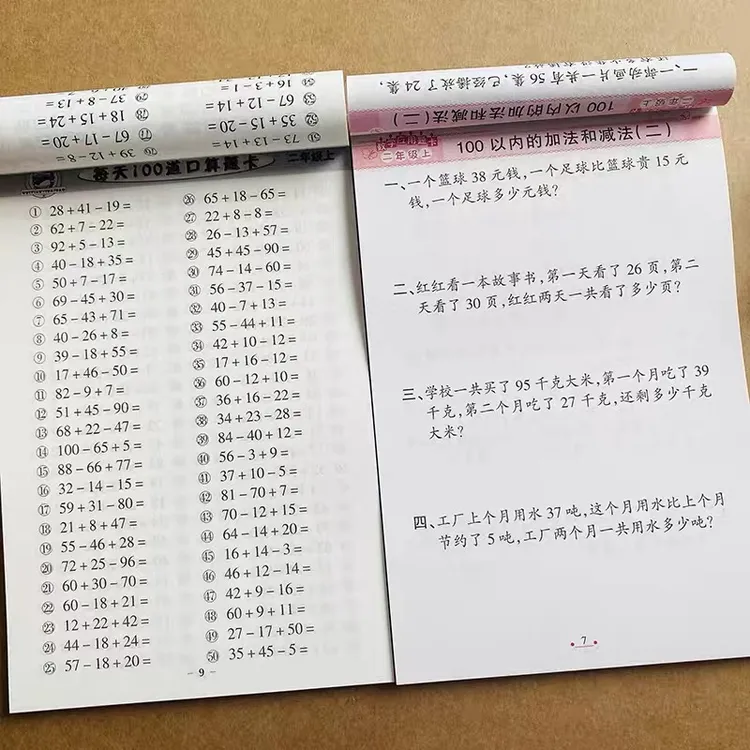 16+3-1=
㊆ 37-8+13=
67-12+14=
18+15+24=
35+15-20=
67-17+20=
73-13+14=
39+12-8=
每天100道口算题卡 二年级上
① 28+41-19=
② 62+7-22=
③ 92+5-13=
④ 40-18+35=
⑤ 50+7-17=
⑥ 69-45+30=
⑦ 65-43+71=
⑧ 40-26+8=
⑨ 39-18+55=
⑩ 17+46-50=
⑪ 82-9+7=
⑫ 51+45-90=
⑬ 68+22-47=
⑭ 100-65+5=
⑮ 88-66+77=
⑯ 32-14-15=
⑰ 59+31-80=
⑱ 21+8+47=
⑲ 55-46+28=
⑳ 72+25-96=
㉑ 60+30-70=
㉒ 60-18+21=
㉓ 12+22+42=
㉔ 44-18+24=
㉕ 57-18+20=
㉖ 65+18-65=
㉗ 22+8-8=
㉘ 26-13+57=
㉙ 45+45-90=
㉚ 74-14-60=
㉛ 56-37-15=
㉜ 40-7+13=
㉝ 55-44+11=
㉞ 42+10-12=
㉟ 17+16-12=
㊱ 60-12+10=
㊲ 36+16-22=
㊳ 34+23-28=
㊴ 84-40+12=
㊵ 56-3+9=
㊶ 37+10-5=
㊷ 81-70+7=
㊸ 70-12+15=
㊹ 64-14+20=
㊺ 16+14-3=
㊻ 46+12-14=
㊼ 42+9-16=
㊽ 60+9+11=
㊾ 27-17+50=
㊿ 35+45-5=
- 9 -
一、一部动画片一共有56集,已经播放了24集,
二年级上 100以内的加法和减法(二)
二年级上 100以内的加法和减法(二)
一、一个篮球38元钱,一个足球比篮球贵15元
钱,一个足球多少元钱?
二、红红看一本故事书,第一天看了26页,第二
天看了30页,红红两天一共看了多少页?
三、学校一共买了95千克大米,第一个月吃了39
千克,第二个月吃了27千克,还剩多少千克
大米?
四、工厂上个月用水37吨,这个月用水比上个月
节约了5吨,工厂两个月一共用水多少吨?
7